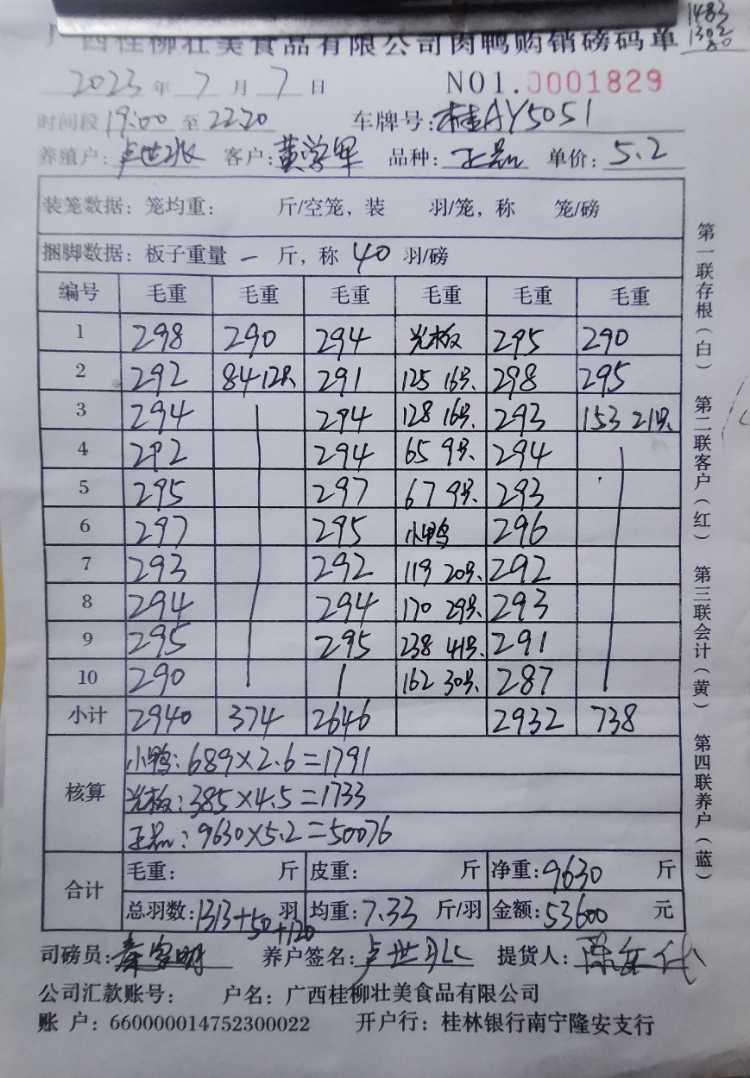 1483
1302
80
广西桂柳壮美食品有限公司肉鸭购销磅码单
2023年 7月 7日 NO1.0001829
时间段 19:00 至 22:20 车牌号:桂AY5051
养殖户: 卢世 客户: 黄学军 品种: 正品 单价: 5.2
装笼数据: 笼均重: 斤/空笼, 装 羽/笼, 称 笼/磅
捆脚数据: 板子重量 一 斤, 称 40 羽/磅
编号 毛重 毛重 毛重 毛重 毛重 毛重
1 298 290 294 光板 295 290
2 292 84 12只 291 125 16号. 298 295
3 294 294 128 16号. 293 153 21号.
4 292 294 65 9号. 294
5 295 297 67 9号. 293
6 297 295 小鸭 296
7 293 292 119 20号. 292
8 294 294 170 29号. 293
9 295 295 238 41号. 291
10 290 162 30号. 287
小计 2940 374 2646 2932 738
核算 小鸭: 689×2.6=1791
光板: 385×4.5=1733
正品: 9630×5.2=50076
合计 毛重: 斤 皮重: 斤 净重: 9630 斤
总羽数: 1313+50+120 羽 均重: 7.33 斤/羽 金额: 53600 元
司磅员: 养户签名: 卢世 提货人:
公司汇款账号: 户名: 广西桂柳壮美食品有限公司
账 户: 660000014752300022 开户行: 桂林银行南宁隆安支行
第一联存根(白) 第二联客户(红) 第三联会计(黄) 第四联养户(蓝)